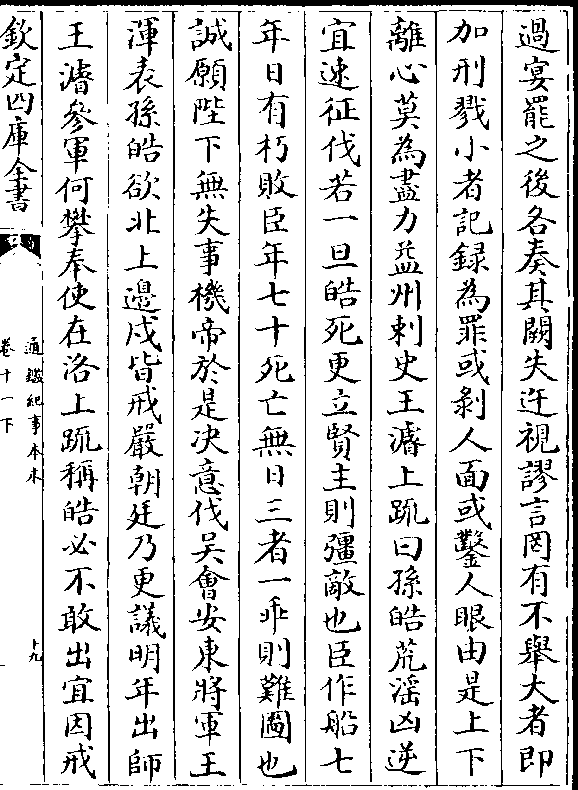 過宴罷之後各奏其闕失迕視謬言罔有不舉大者即
加刑戮小者記録為罪或剝人面或鑿人眼由是上下
離心莫為盡力益州刺史王濬上疏曰孫皓荒滛凶逆
宜速征伐若一旦皓死更立賢主則彊敵也臣作船七
年日有朽敗臣年七十死亡無日三者一乖則難圖也
誠願陛下無失事機帝於是决意伐吴會安東將軍王
渾表孫皓欲北上邊戍皆戒嚴朝廷乃更議明年出師
王濬參軍何攀奉使在洛上疏稱皓必不敢出宜因戒
欽定四庫全書
通鑑紀事本末
卷十一下
十九